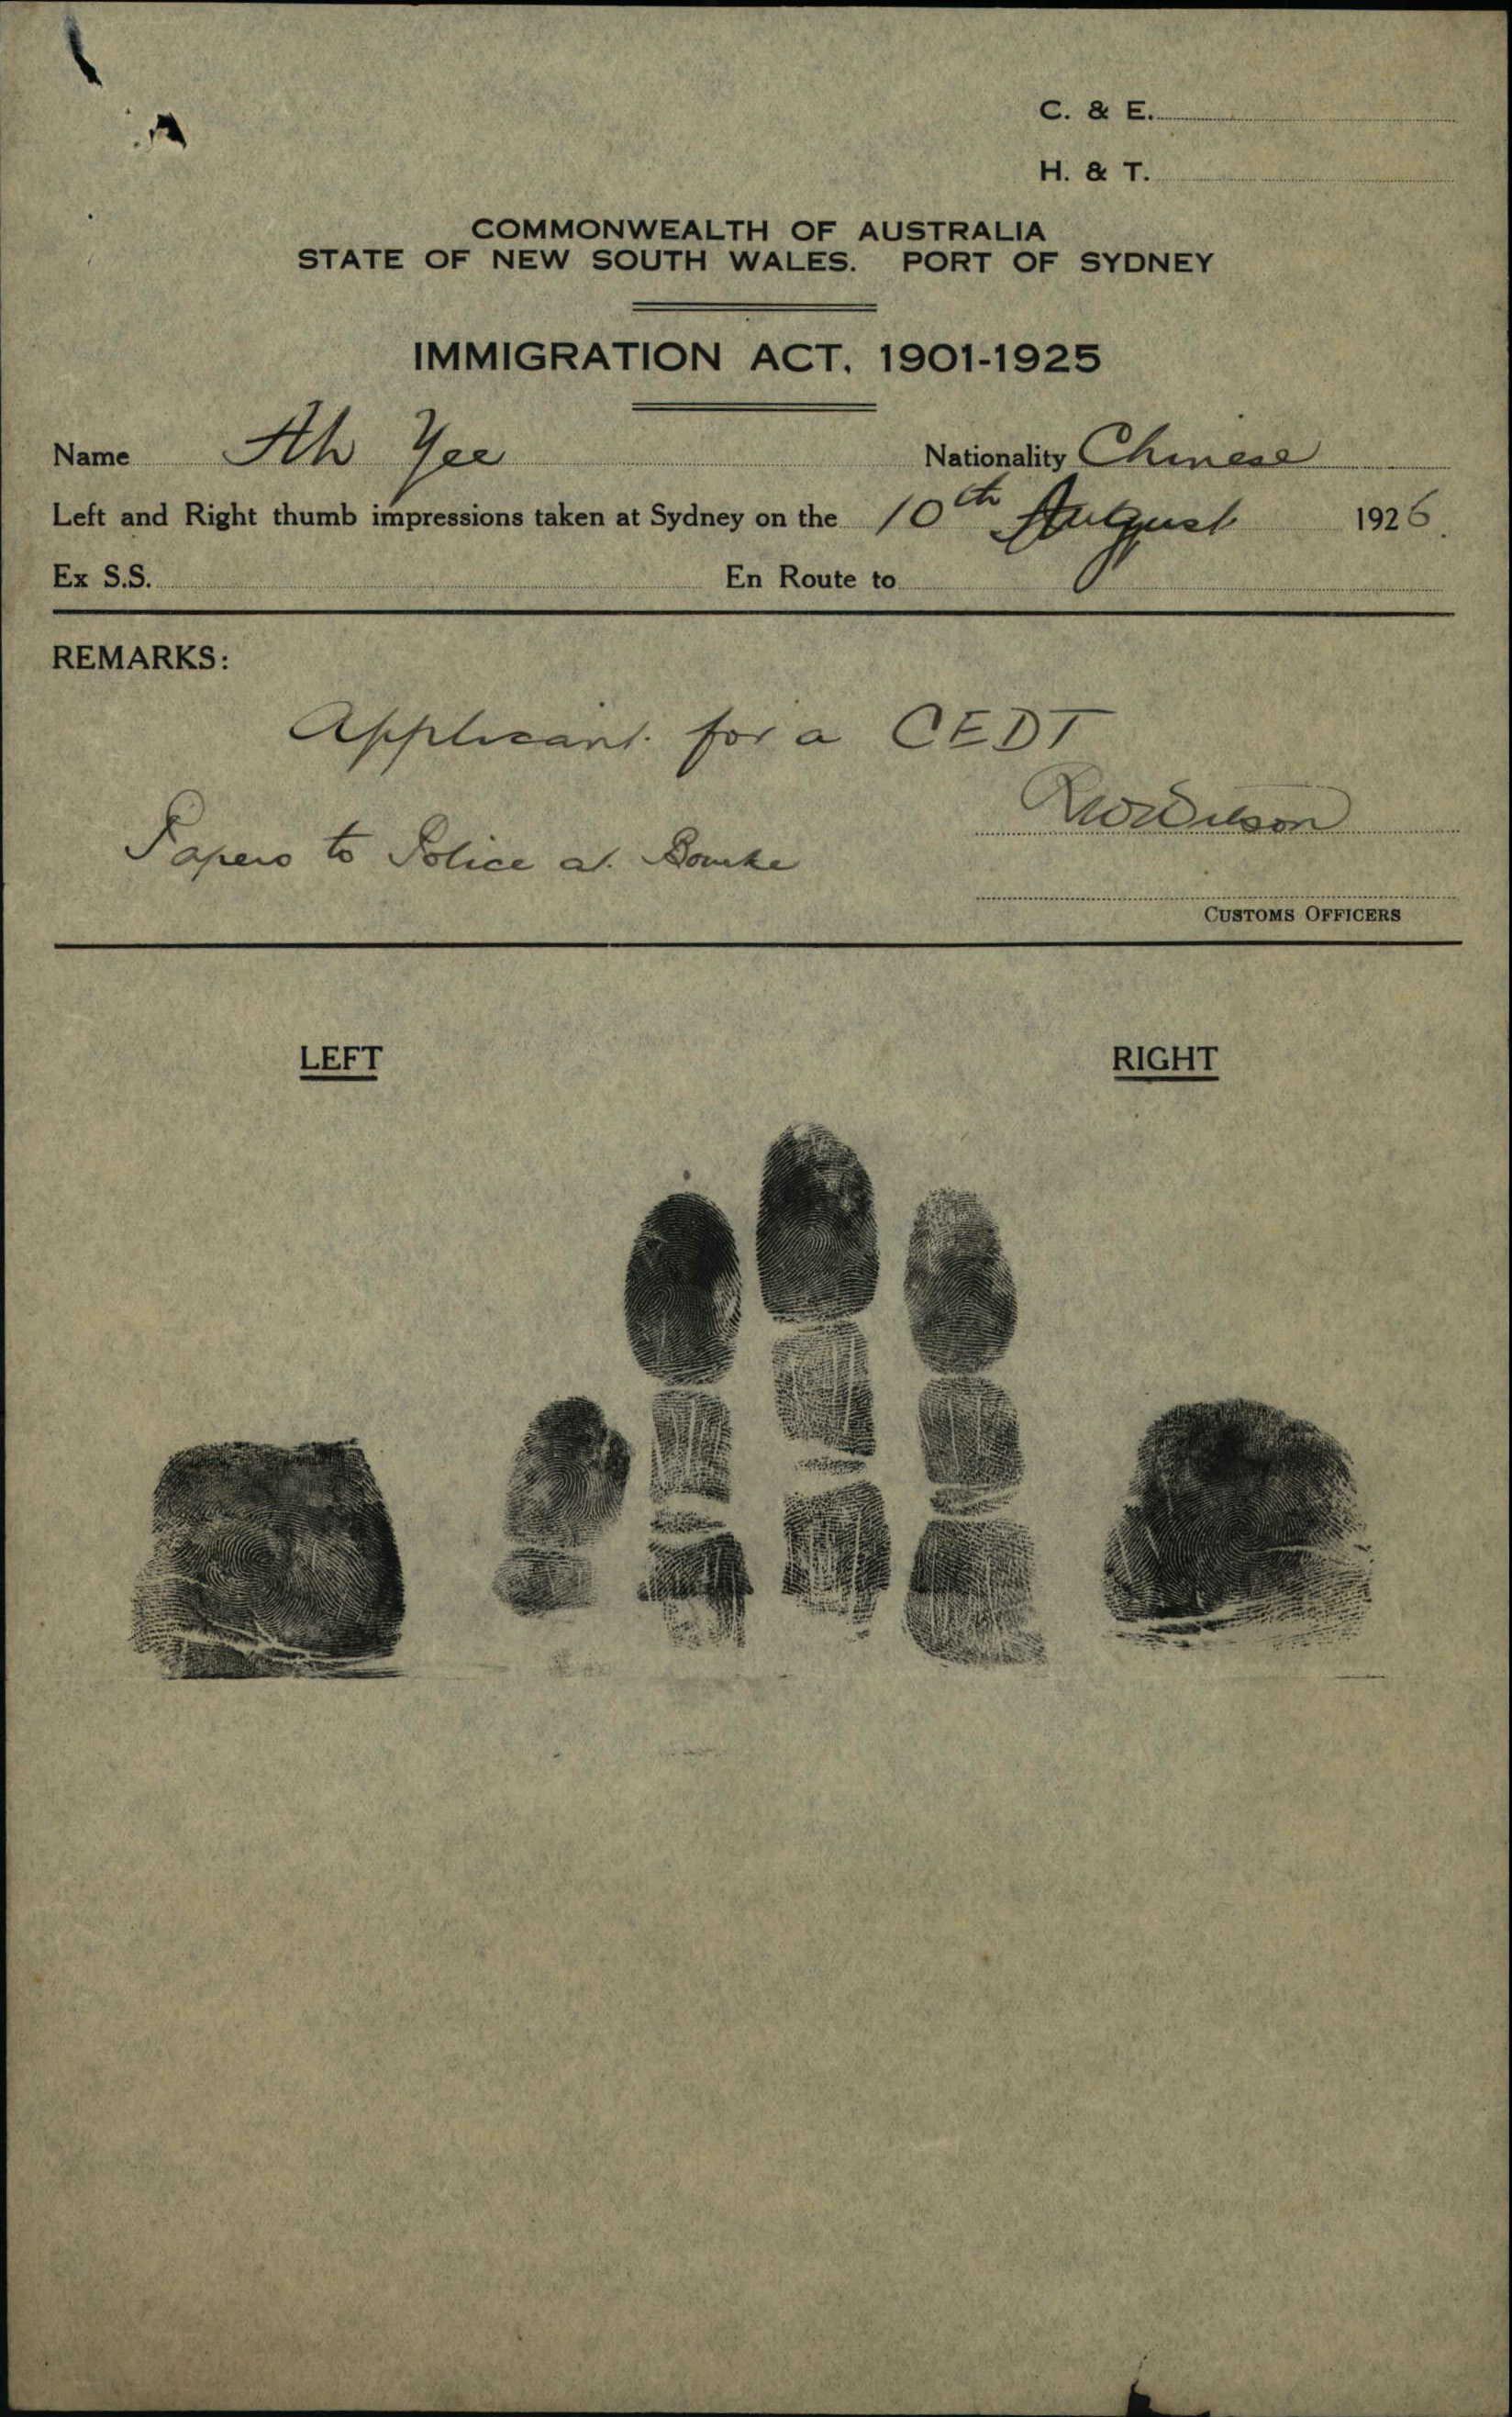 C. & E.
H. & T.
COMMONWEALTH OF AUSTRALIA
STATE OF NEW SOUTH WALES. PORT OF SYDNEY
IMMIGRATION ACT, 1901-1925
Name Ah Yee Nationality Chinese
Left and Right thumb impressions taken at Sydney on the 10th August 1926.
Ex S.S. En Route to
REMARKS:
Applicant for a CEDT
RWWilson
Papers to Police at Bourke
CUSTOMS OFFICERS
LEFT RIGHT